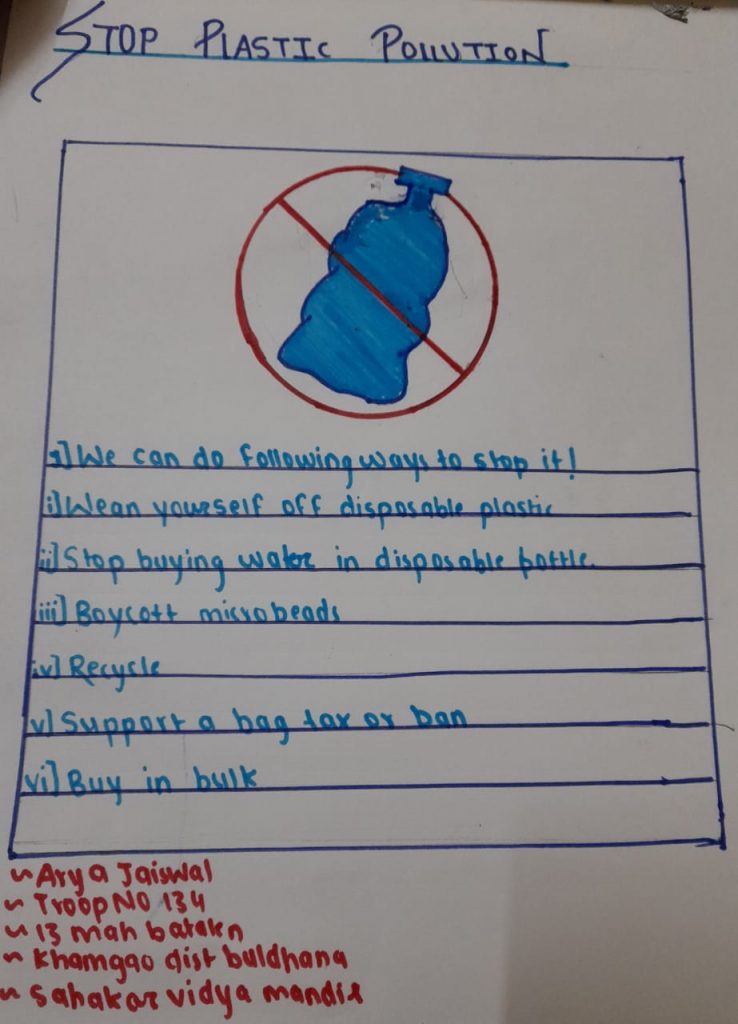 STOP PLASTIC POLLUTION
1] We can do following ways to stop it!
i] Wean yourself off disposable plastic
ii] Stop buying water in disposable bottle.
iii] Boycott microbeads
iv] Recycle
v] Support a bag tax or ban
vi] Buy in bulk
~ Arya Jaiswal
~ Troop NO 134
~ 13 mah batakn
~ Khamgao dist buldhana
~ Sahakar vidya mandir